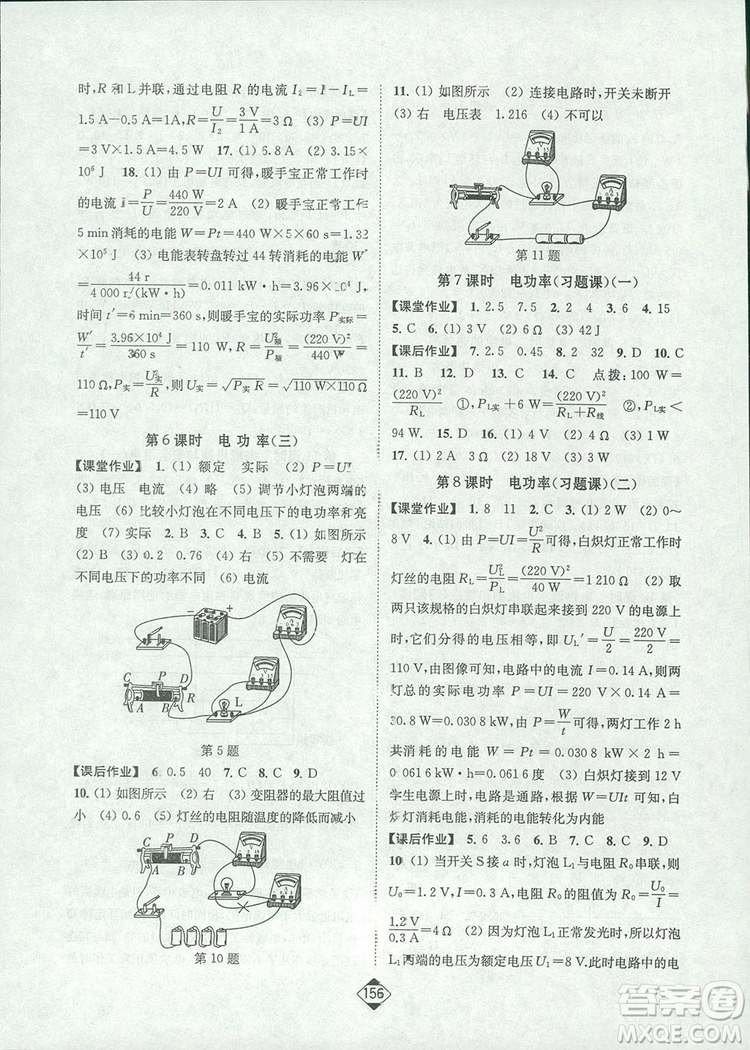 时,R 和 L 并联,通过电阻 R 的电流 I₂=I-I_L=
1.5 A-0.5 A=1A,R=U/I₂=3 V/1 A=3 Ω (3) P=UI
=3 V×1.5 A=4.5 W 17. (1) 6.8 A (2) 3.15×
10⁶ J 18. (1) 由 P=UI 可得,暖手宝正常工作时
的电流 I=P/U=440 W/220 V=2 A (2) 暖手宝正常工作
5 min 消耗的电能 W=Pt=440 W×5×60 s=1.32
×10⁵ J (3) 电能表转盘转过 44 转消耗的电能 W′
=44 r/4 000 r/(kW·h)=0.011 kW·h=3.96×10⁴ J
时间 t′=6 min=360 s,则暖手宝的实际功率 P实际=
W′/t′=3.96×10⁴ J/360 s=110 W,R=U²额/P额=(220 V)²/440 W=
110 Ω,P实=U²实/R,则 U实=√P实R=√110 W×110 Ω
=110 V
第 6 课时 电 功 率(三)
【课堂作业】 1. (1) 额定 实际 (2) P=UI
(3) 电压 电流 (4) 略 (5) 调节小灯泡两端的
电压 (6) 比较小灯泡在不同电压下的电功率和亮
度 (7) 实际 2. B 3. B 4. B 5. (1) 如图所示
(2) B (3) 0.2 0.76 (4) B (5) 不需要 灯在
不同电压下的功率不同 (6) 电流
- +
C P D
R
A B
L
第 5 题
【课后作业】 6. 0.5 40 7. C 8. C 9. D
10. (1) 如图所示 (2) 右 (3) 变阻器的最大阻值过
小 (4) 0.6 (5) 灯丝的电阻随温度的降低而减小
C P D
A B
第 10 题
11. (1) 如图所示 (2) 连接电路时,开关未断开
(3) 右 电压表 1.216 (4) 不可以
第 11 题
第 7 课时 电功率(习题课)(一)
【课堂作业】 1. 2.5 7.5 2. 2 4 3. 6 4. 15
5. C 6. (1) 3 V (2) 6 Ω (3) 42 J
【课后作业】 7. 2.5 0.45 8. 2 32 9. D 10. C
11. B 12. B 13. C 14. C 点拨:100 W=
(220 V)²/R_L ①,P_L实+6 W=(220 V)²/(R_L+R线) ②,P_L实<
94 W. 15. D 16. (1) 2 V (2) 4 Ω (3) 1 W
17. (1) 2 A (2) 4 Ω (3) 3 W
第 8 课时 电功率(习题课)(二)
【课堂作业】 1. 8 11 2. C 3. (1) 2 W (2) 0~
8 V 4. (1) 由 P=UI=U²/R可得,白炽灯正常工作时
灯丝的电阻 R_L=U²L/P_L=(220 V)²/40 W=1 210 Ω (2) 取
两只该规格的白炽灯串联起来接到 220 V 的电源上
时,它们分得的电压相等,即 U_L′=U/2=220 V/2=
110 V,由图像可知,电路中的电流 I=0.14 A,则两
灯总的实际电功率 P=UI=220 V×0.14 A=
30.8 W=0.030 8 kW,由 P=W/t可得,两灯工作 2 h
共消耗的电能 W=Pt=0.030 8 kW×2 h=
0.061 6 kW·h=0.061 6 度 (3) 白炽灯接到 12 V
学生电源上时,电路是通路,根据 W=UIt 可知,白
炽灯会消耗电能,消耗的电能转化为内能
【课后作业】 5. 6 3.6 6. B 7. C 8. C 9. D
10. (1) 当开关 S 接 a 时,灯泡 L₁与电阻 R₀串联,则
U₀=1.2 V,I=0.3 A,电阻 R₀ 的阻值为 R₀=U₀/I=
1.2 V/0.3 A=4 Ω (2) 因为灯泡 L₁正常发光时,所以灯泡
L₁两端的电压为额定电压 U₁=8 V,此时电路中的电
156
答案圈
MXQE.COM